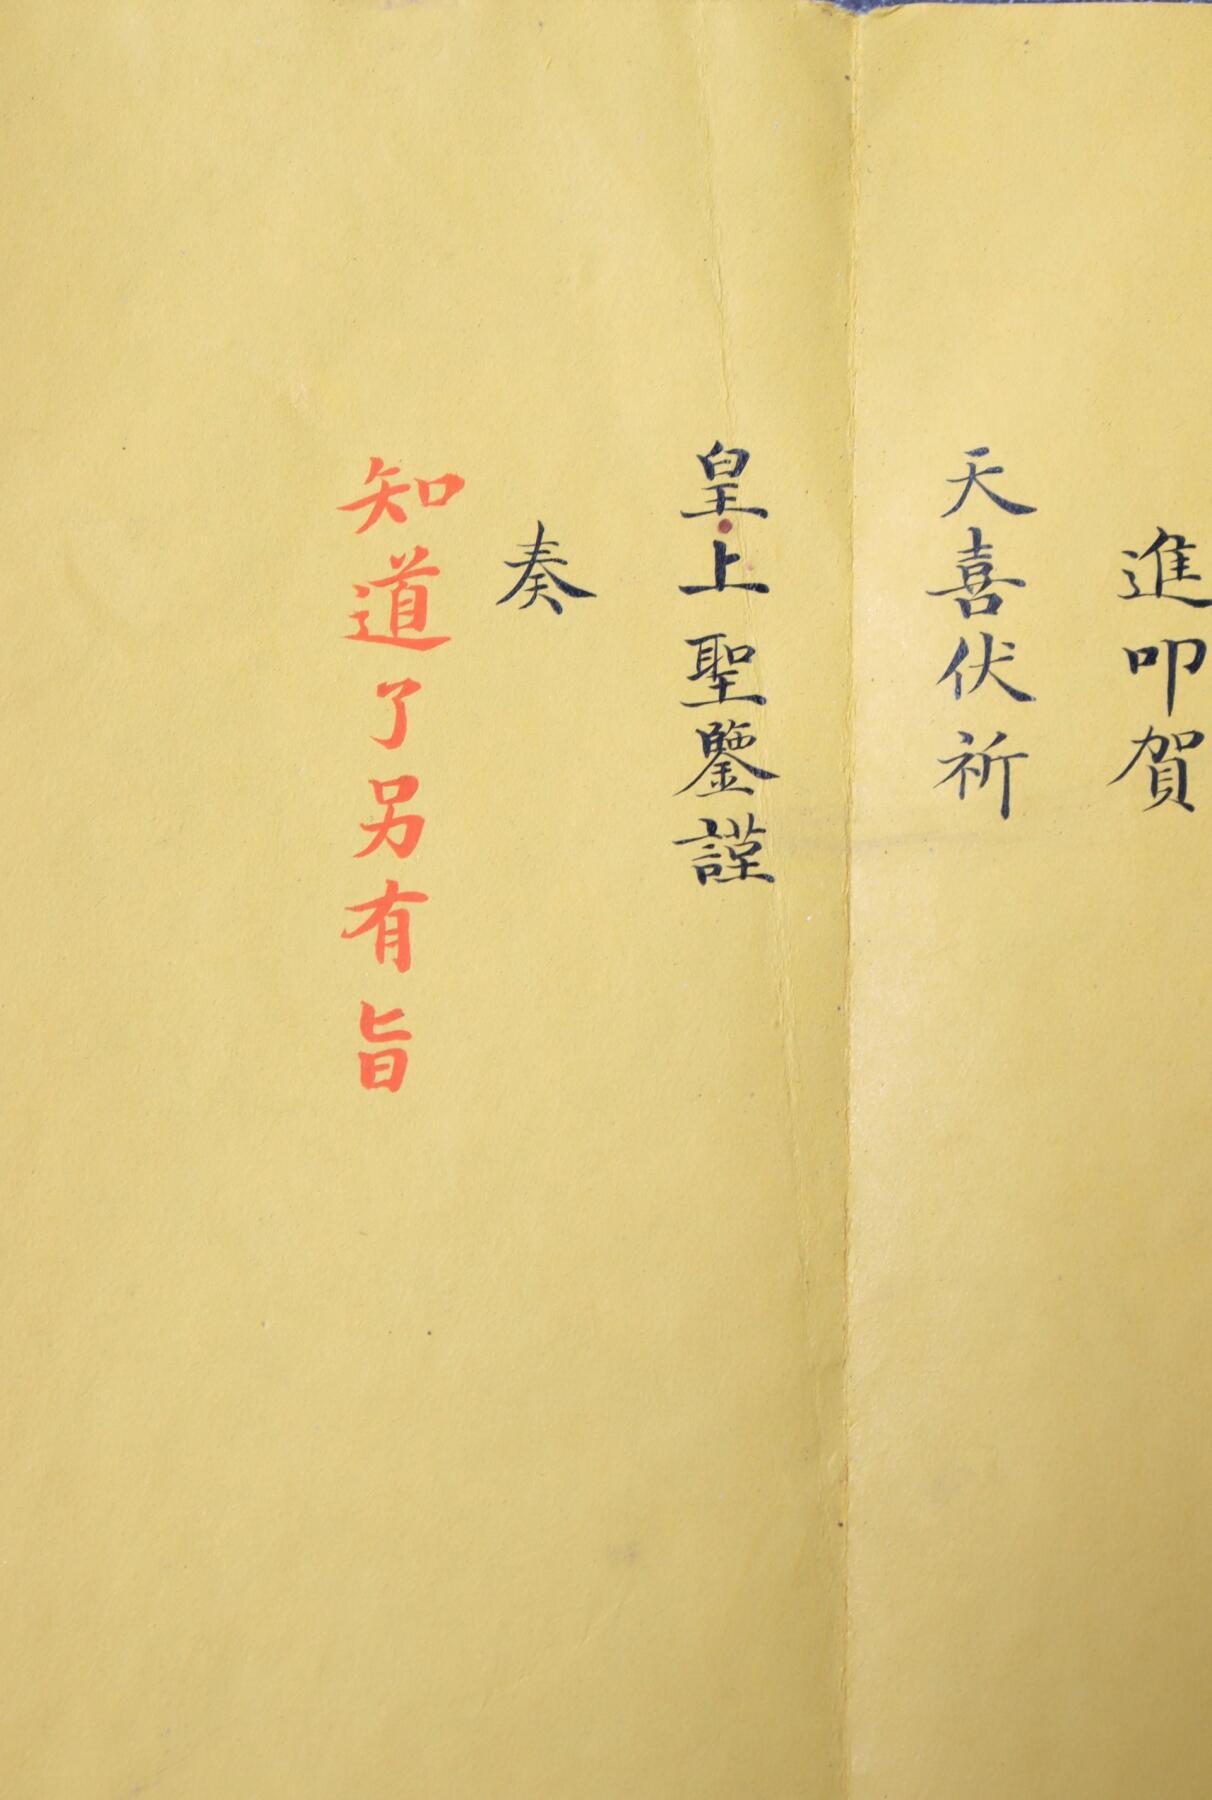 進叩賀
天喜伏祈
皇上聖鑒謹
奏
知道了另有旨